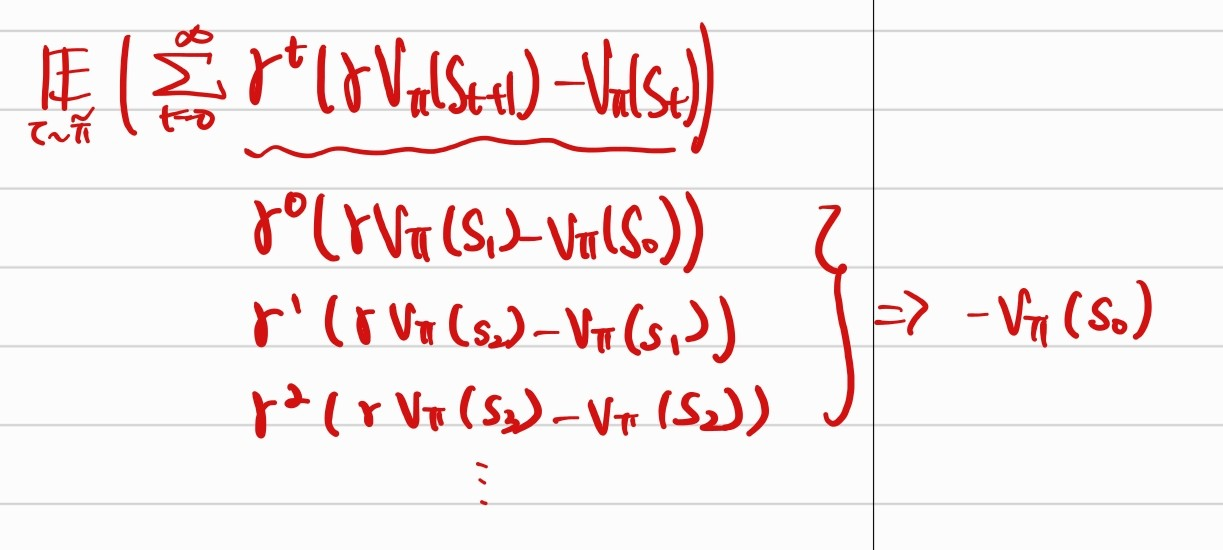 𝔼_{τ∼π̃} ( ∑_{t=0}^{∞} γ^t (γV_π(S_{t+1}) − V_π(S_t)) )
γ^0 (γV_π(S_1) − V_π(S_0))
γ^1 (γV_π(S_2) − V_π(S_1)) } ⇒ −V_π(S_0)
γ^2 (γV_π(S_3) − V_π(S_2))
⋮